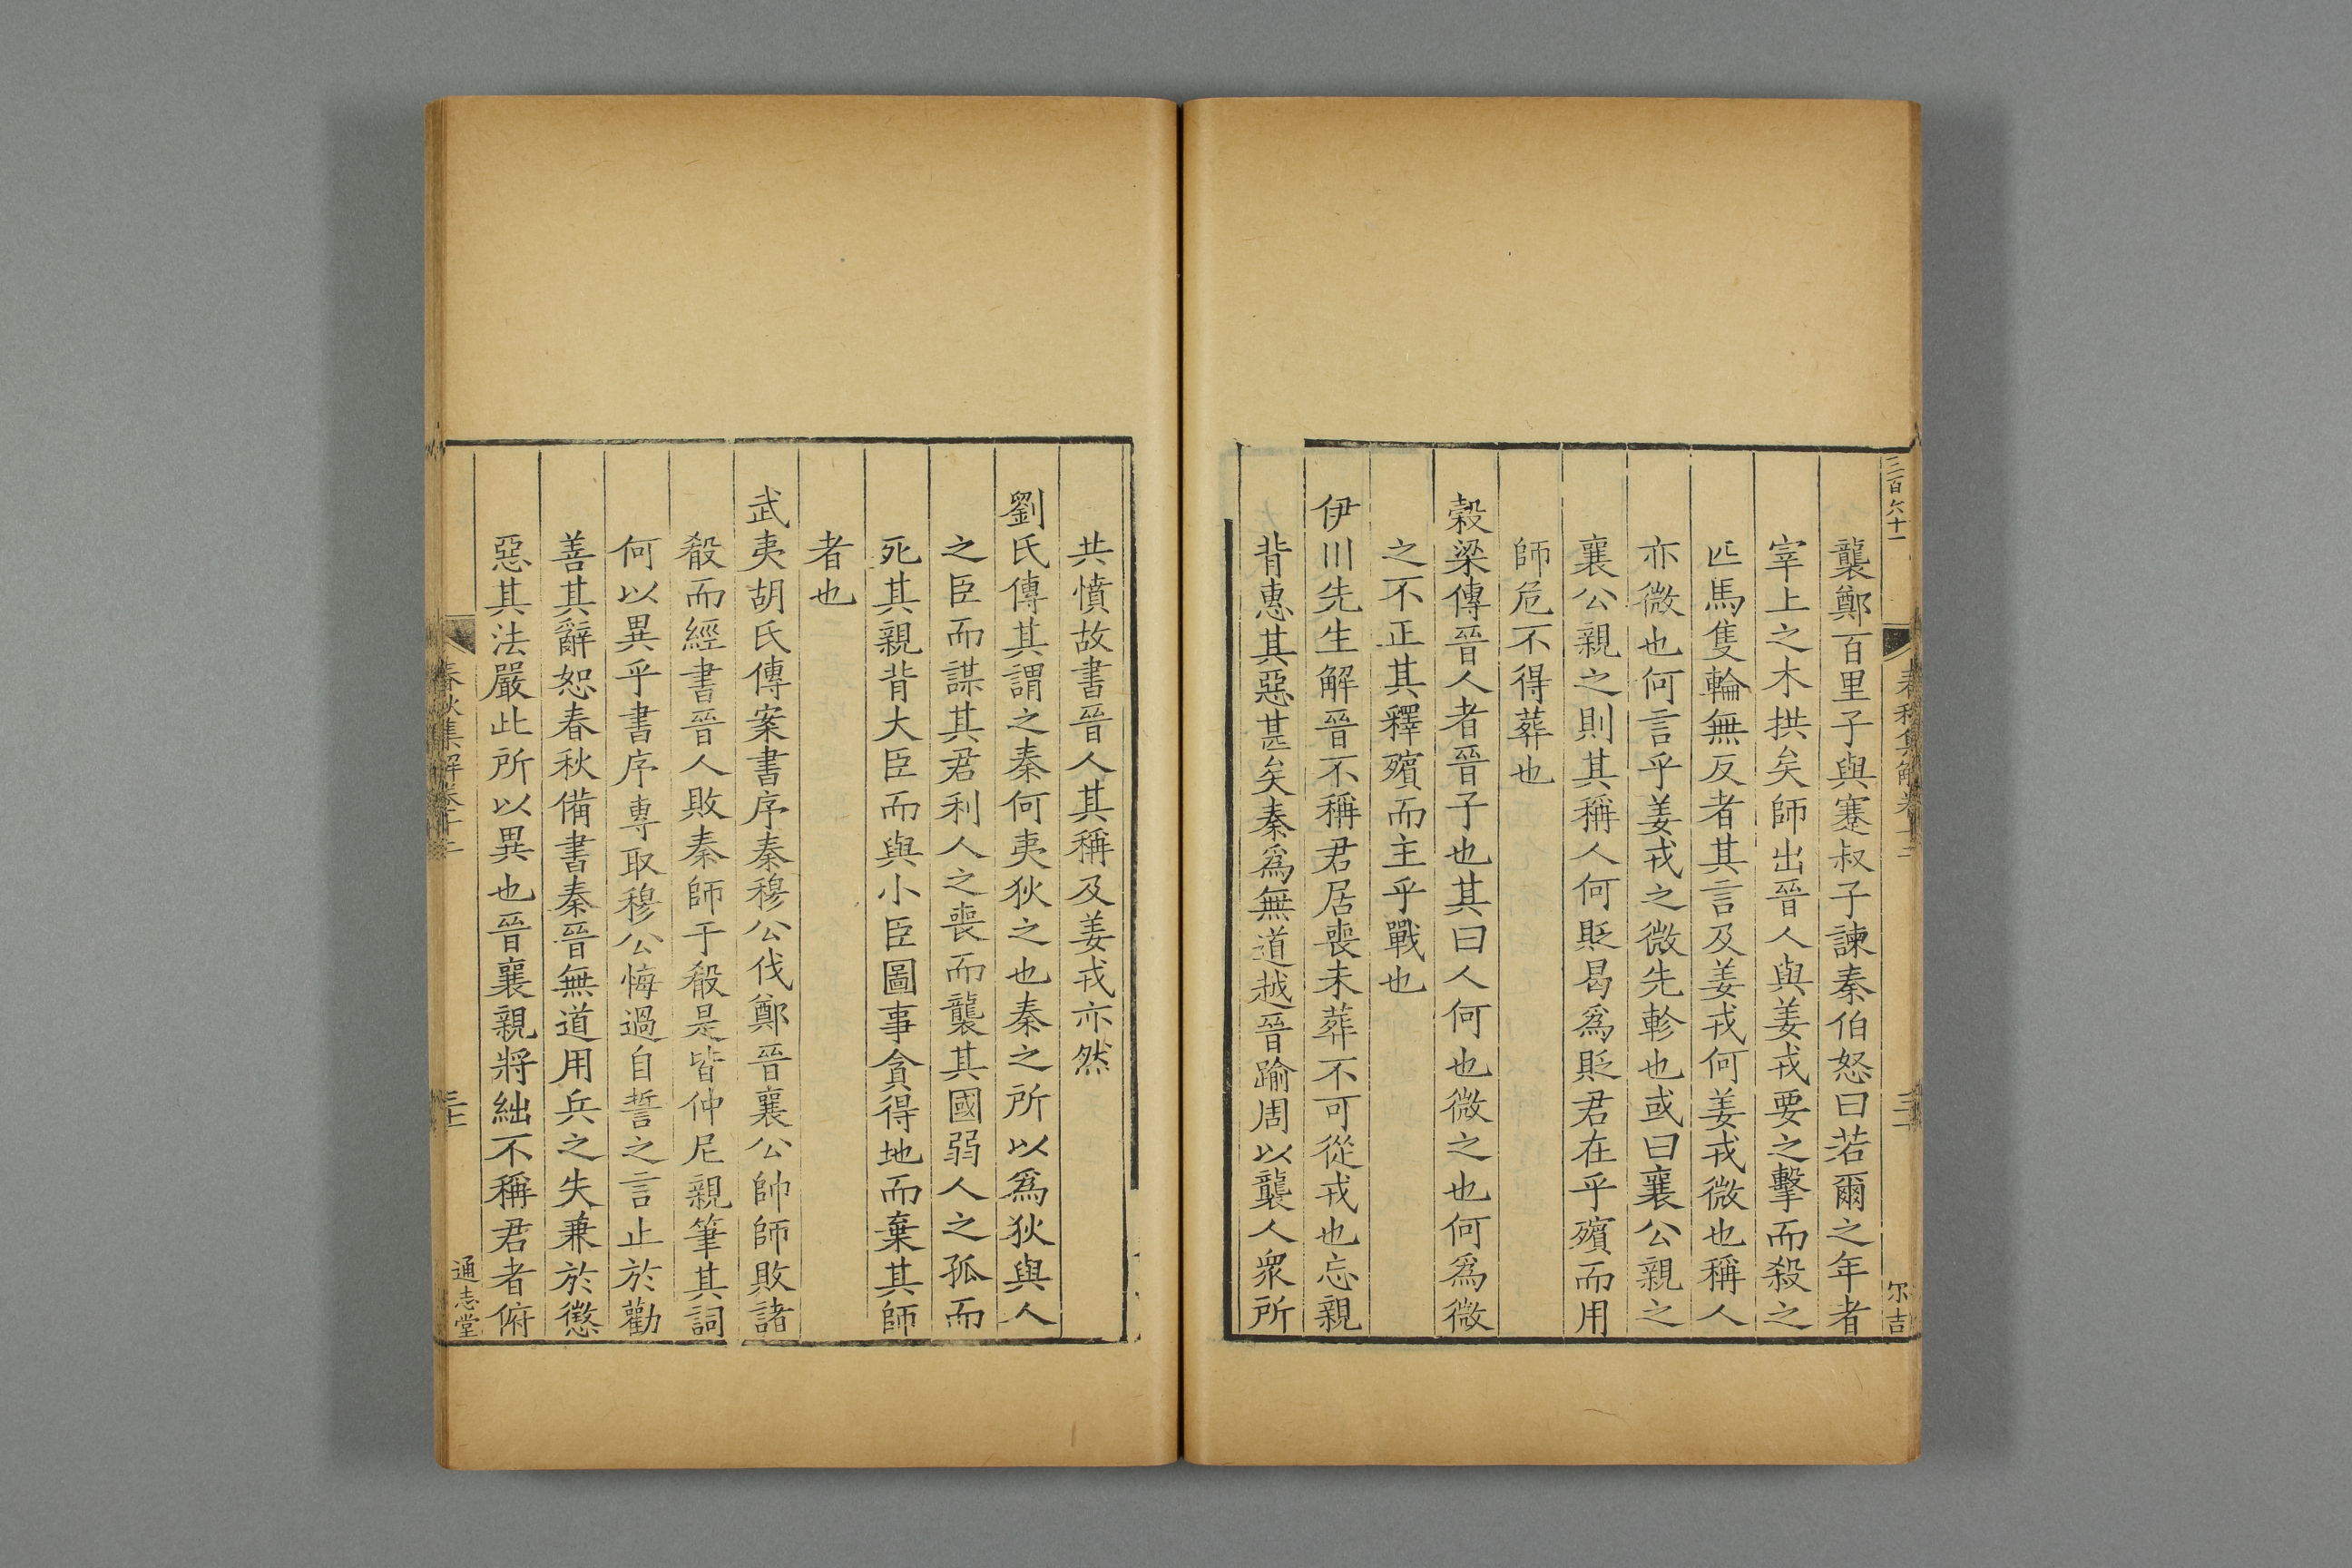 三百六十一
春秋集解卷十二
尔吉
襲鄭百里子與蹇叔子諫秦伯怒曰若爾之年者
宰上之木拱矣師出晉人與姜戎要之擊而殺之
匹馬隻輪無反者其言及姜戎何姜戎微也稱人
亦微也何言乎姜戎之微先軫也或曰襄公親之
襄公親之則其稱人何貶曷爲貶君在乎殯而用
師危不得葬也
榖梁傳晉人者晉子也其曰人何也微之也何爲微
之不正其釋殯而主乎戰也
伊川先生解晉不稱君居喪未葬不可從戎也忘親
背惠其惡甚矣秦爲無道越晉踰周以襲人衆所
共憤故書晉人其稱及姜戎亦然
劉氏傳其謂之秦何夷狄之也秦之所以爲狄與人
之臣而謀其君利人之喪而襲其國弱人之孤而
死其親背大臣而與小臣圖事貪得地而棄其師
者也
武夷胡氏傳案書序秦穆公伐鄭晉襄公帥師敗諸
殽而經書晉人敗秦師于殽是皆仲尼親筆其詞
何以異乎書序專取穆公悔過自誓之言止於勸
善其辭恕春秋備書秦晉無道用兵之失兼於懲
惡其法嚴此所以異也晉襄親將絀不稱君者俯
春秋集解卷十二
通志堂